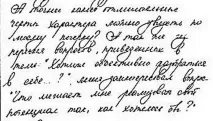 А какие отличительные
черты характера можно увидеть по
моему почерку? А так же из
перечня вопросов, приведенных в
теме "Хотите объективно разобраться
в себе..?", меня заинтересовал вопрос
"Что мешает мне реализовать свой
потенциал так, как хотелось бы?"